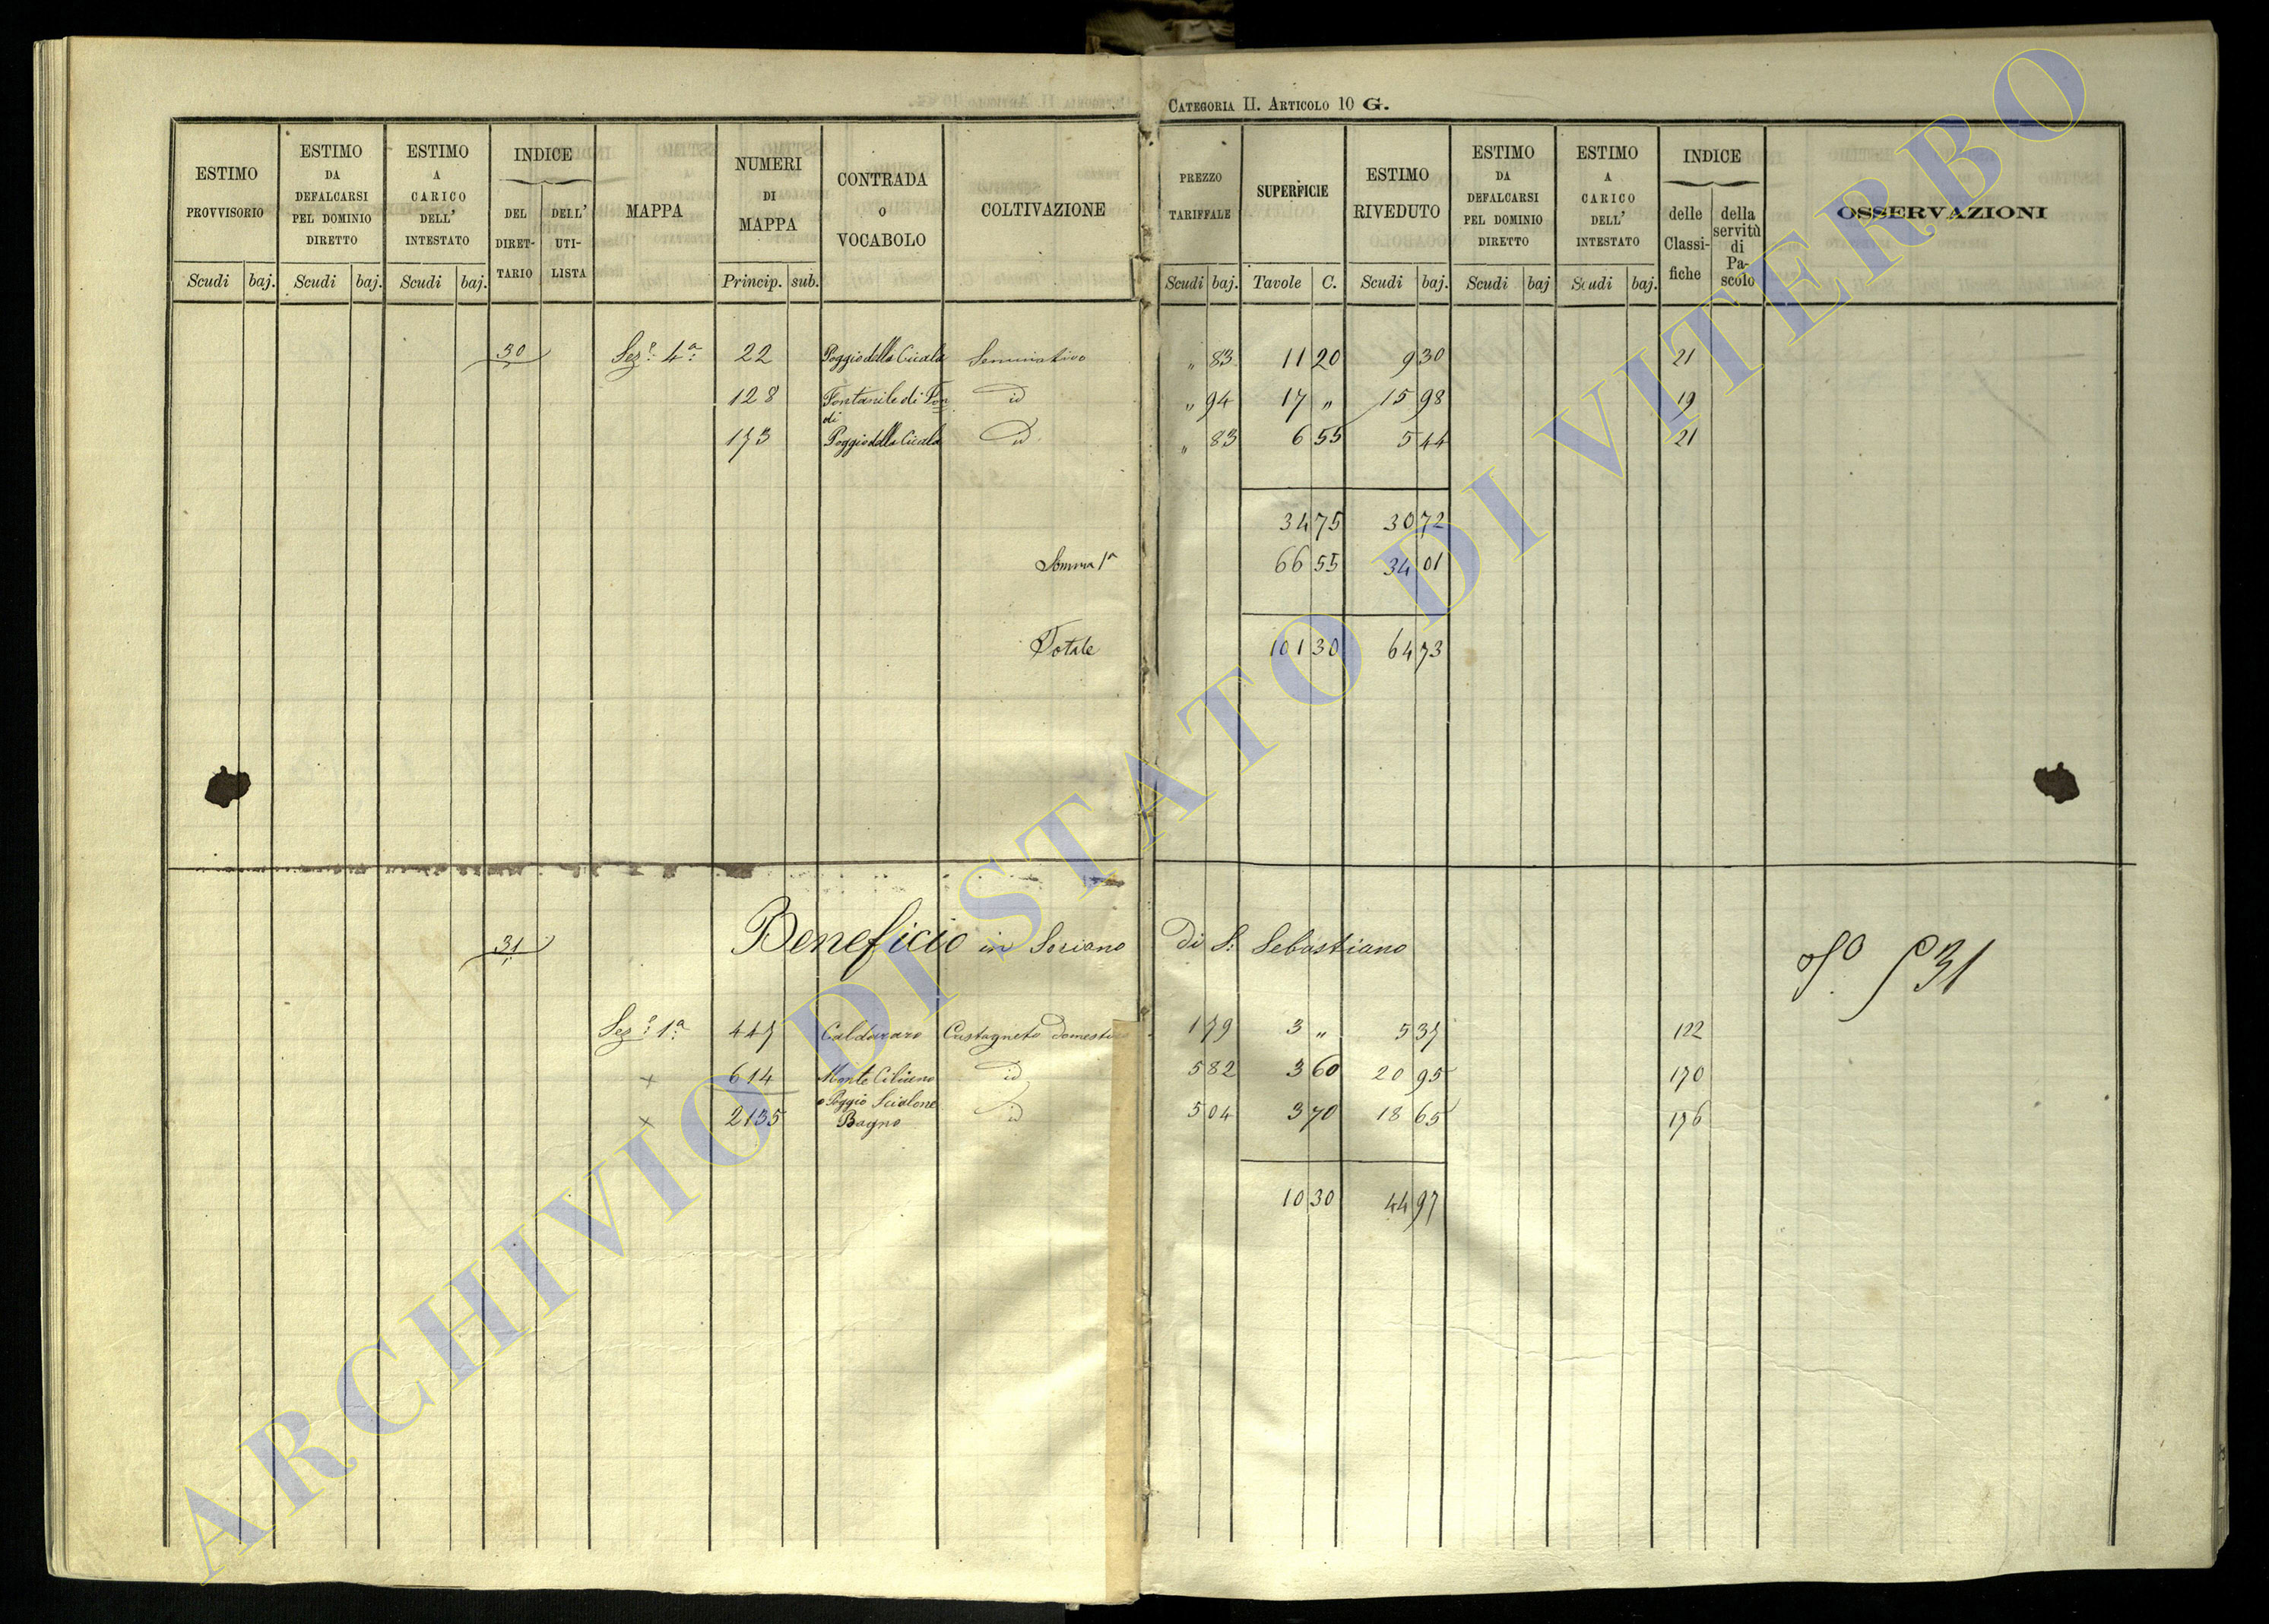 CATEGORIA II. ARTICOLO 10 G.
ESTIMO PROVVISORIO Scudi baj.
ESTIMO DA DEFALCARSI PEL DOMINIO DIRETTO Scudi baj.
ESTIMO A CARICO DELL' INTESTATO Scudi baj.
INDICE DEL DIRETTARIO DELL' UTILISTA
MAPPA
NUMERI DI MAPPA Princip. sub.
CONTRADA O VOCABOLO
COLTIVAZIONE
PREZZO TARIFFALE Scudi baj.
SUPERFICIE Tavole C.
ESTIMO RIVEDUTO Scudi baj.
ESTIMO DA DEFALCARSI PEL DOMINIO DIRETTO Scudi baj
ESTIMO A CARICO DELL' INTESTATO Scudi baj.
INDICE delle Classifiche della servitù di Pascolo
OSSERVAZIONI
30 Sez.e 4a 22 Poggio della Cicala Seminativo " 83 11 20 9 30 21
128 Fontanile di Fondi id " 94 17 " 15 98 19
173 Poggio della Cicala id " 83 6 55 5 44 21
34 75 30 72
Somma 1a 66 55 34 01
Totale 101 30 64 73
31 Beneficio in Soriano di S. Sebastiano
31
Sez.e 1a 447 Caldararo Castagneto domestico 1 79 3 " 5 37 122
x 614 Monte Cilieno id 5 82 3 60 20 95 170
o Poggio Scialone
x 2135 Bagno id 5 04 3 70 18 65 176
10 30 44 97
ARCHIVIO DI STATO DI VITERBO